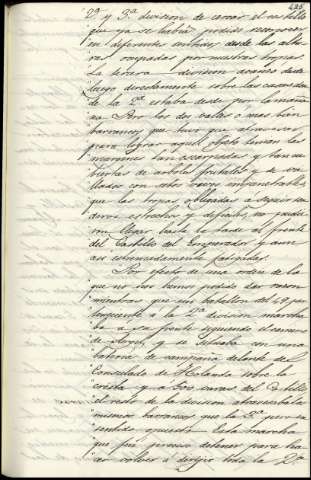 2ª y 3ª division de cercar el castillo
que ya se habia podido reconocer
en diferentes sentidos desde las altu
ras ocupadas por nuestras tropas.
La tercera division avanzó desde
luego directamente sobre las casas
de la 2ª estaba desde por la maña
na. Pero los dos valles ó mas bien
barrancos que tuvo que atravesar
para lograr aquel objeto tenian las
margenes tan escarpadas y tan cu
biertas de arboles frutales y de va
llados con setos vivos impenetrables,
que las tropas obligadas á seguir sen
deros estrechos y dificiles, no pudie
ron llegar hasta la tarde al frente
del Castillo del Emperador y aun
asi estremadamente fatigadas.
Por efecto de una orden de la
que no nos hemos podido dar razon
mientras que un batallon del 49 per
teneciente á la 2ª division marcha
ba á su frente siguiendo el camino
de Argel, y se situaba con una
bateria de campaña delante del
Consulado de Holanda sobre la
cresta y á 600 varas del Castillo
el resto de la division atravesaba los
mismos barrancos que la 3ª pero en
sentido opuesto. Esta marcha
que fué preciso detener para ha
cer volver á dirigir toda la 2ª